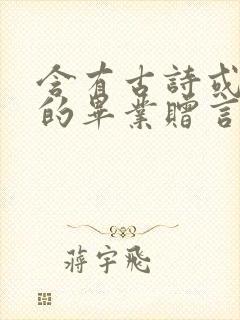 含有古詩或
的畢業贈言
蔣宇飛